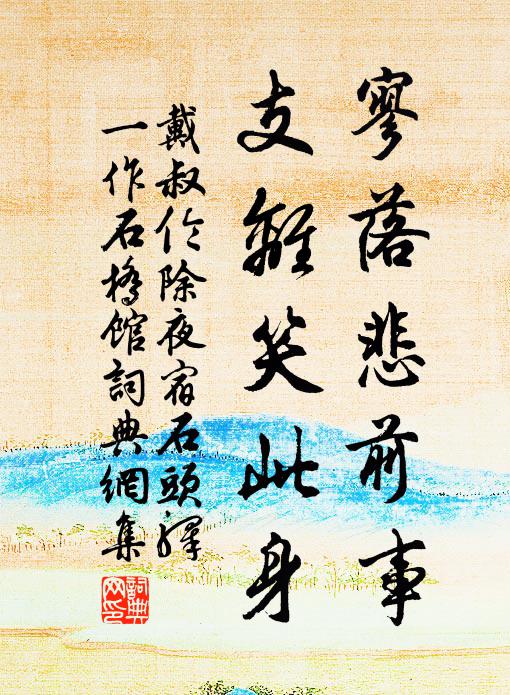 寥落悲前事
支離笑此身
戴叔伦除夜宿石頭驛
一作石橋館詞典網集
詞典網印